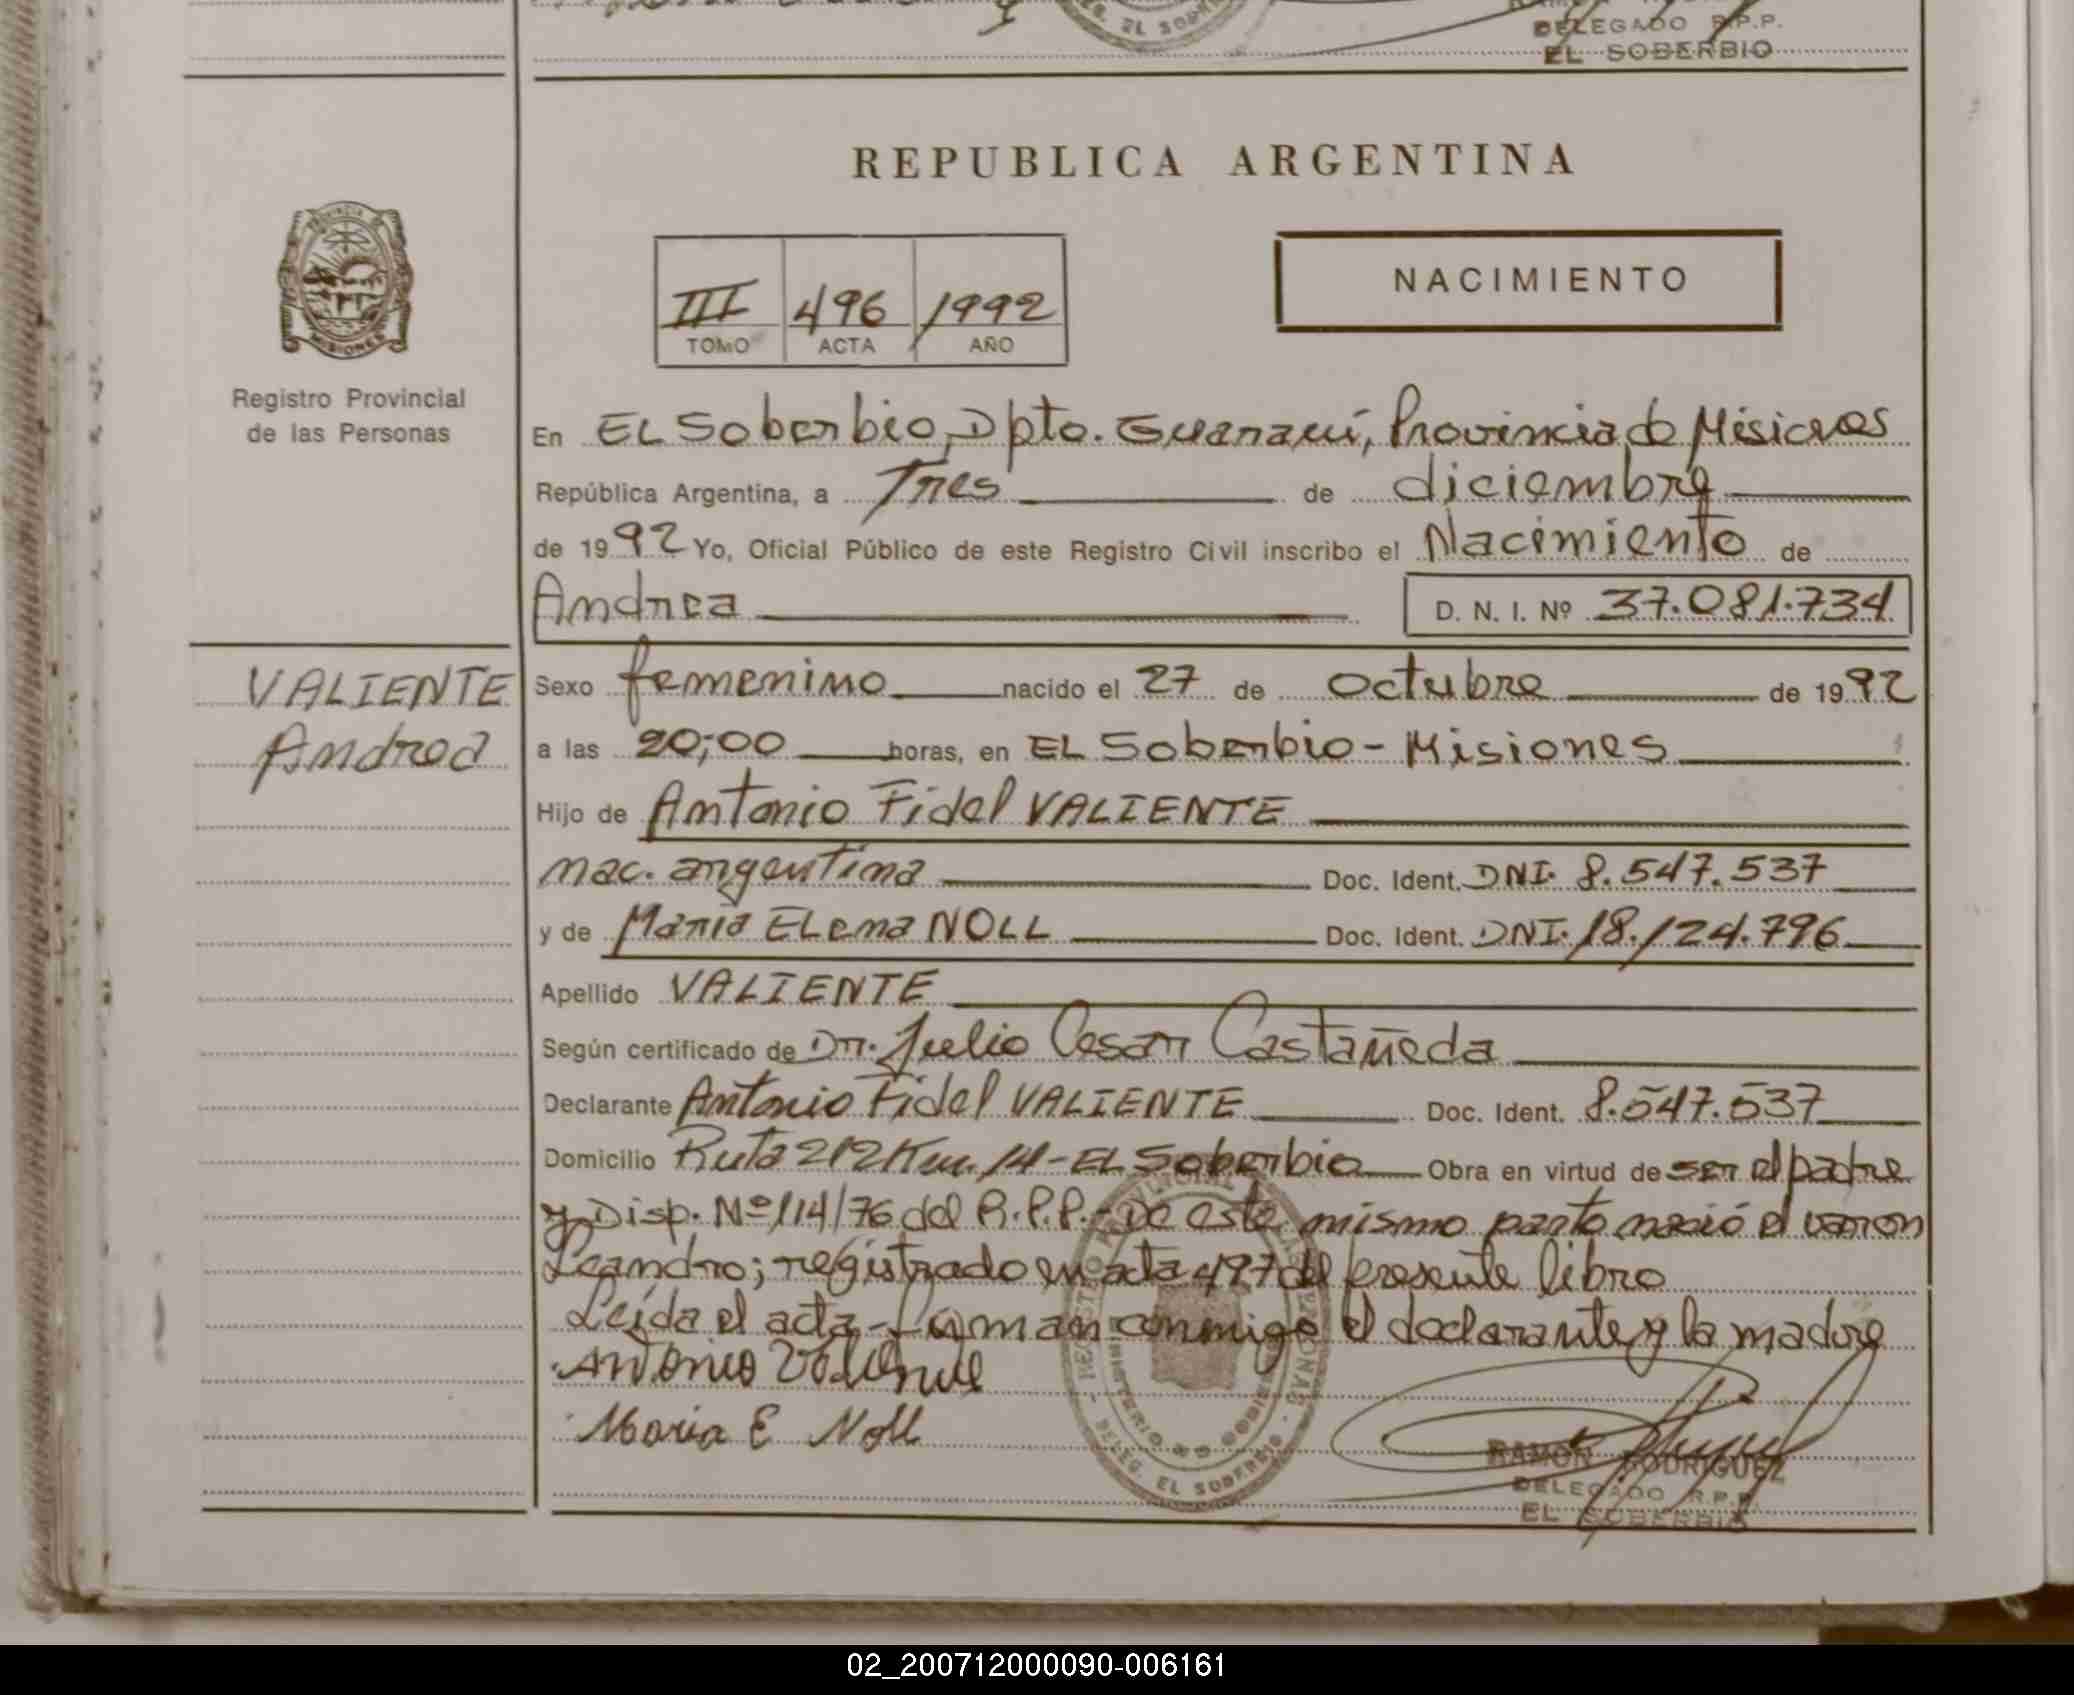 DELEGADO R.P.P.
EL SOBERBIO
REPUBLICA ARGENTINA
PROVINCIA DE
MISIONES
Registro Provincial
de las Personas
III 496 1992
TOMO ACTA AÑO
NACIMIENTO
En EL Soberbio, Dpto. Guaraní, Provincia de Misiones
República Argentina, a Tres de diciembre
de 1992 Yo, Oficial Público de este Registro Civil inscribo el Nacimiento de
Andrea D. N. I. Nº 37.081.734
VALIENTE
Andrea
Sexo femenino nacido el 27 de octubre de 1992
a las 20;00 horas, en EL Soberbio - Misiones
Hijo de Antonio Fidel VALIENTE
nac. argentina Doc. Ident. DNI. 8.547.537
y de Maria ELena NOLL Doc. Ident. DNI. 18.124.796
Apellido VALIENTE
Según certificado de Dr. Julio Cesar Castañeda
Declarante Antonio Fidel VALIENTE Doc. Ident. 8.547.537
Domicilio Ruta 212 Km. 14 - EL Soberbio Obra en virtud de ser el padre
y Disp. Nº 114/76 del R.P.P.- De este mismo parto nació el varon
Leandro; registrado en acta 497 del presente libro
Leída el acta - firman conmigo el declarante y la madre
Antonio Valiente
Maria E Noll
REGISTRO PROVINCIAL DE LAS PERSONAS
MINISTERIO DE GOBIERNO
DELEG. EL SOBERBIO
RAMON RODRIGUEZ
DELEGADO R.P.P.
EL SOBERBIO
02_200712000090-006161